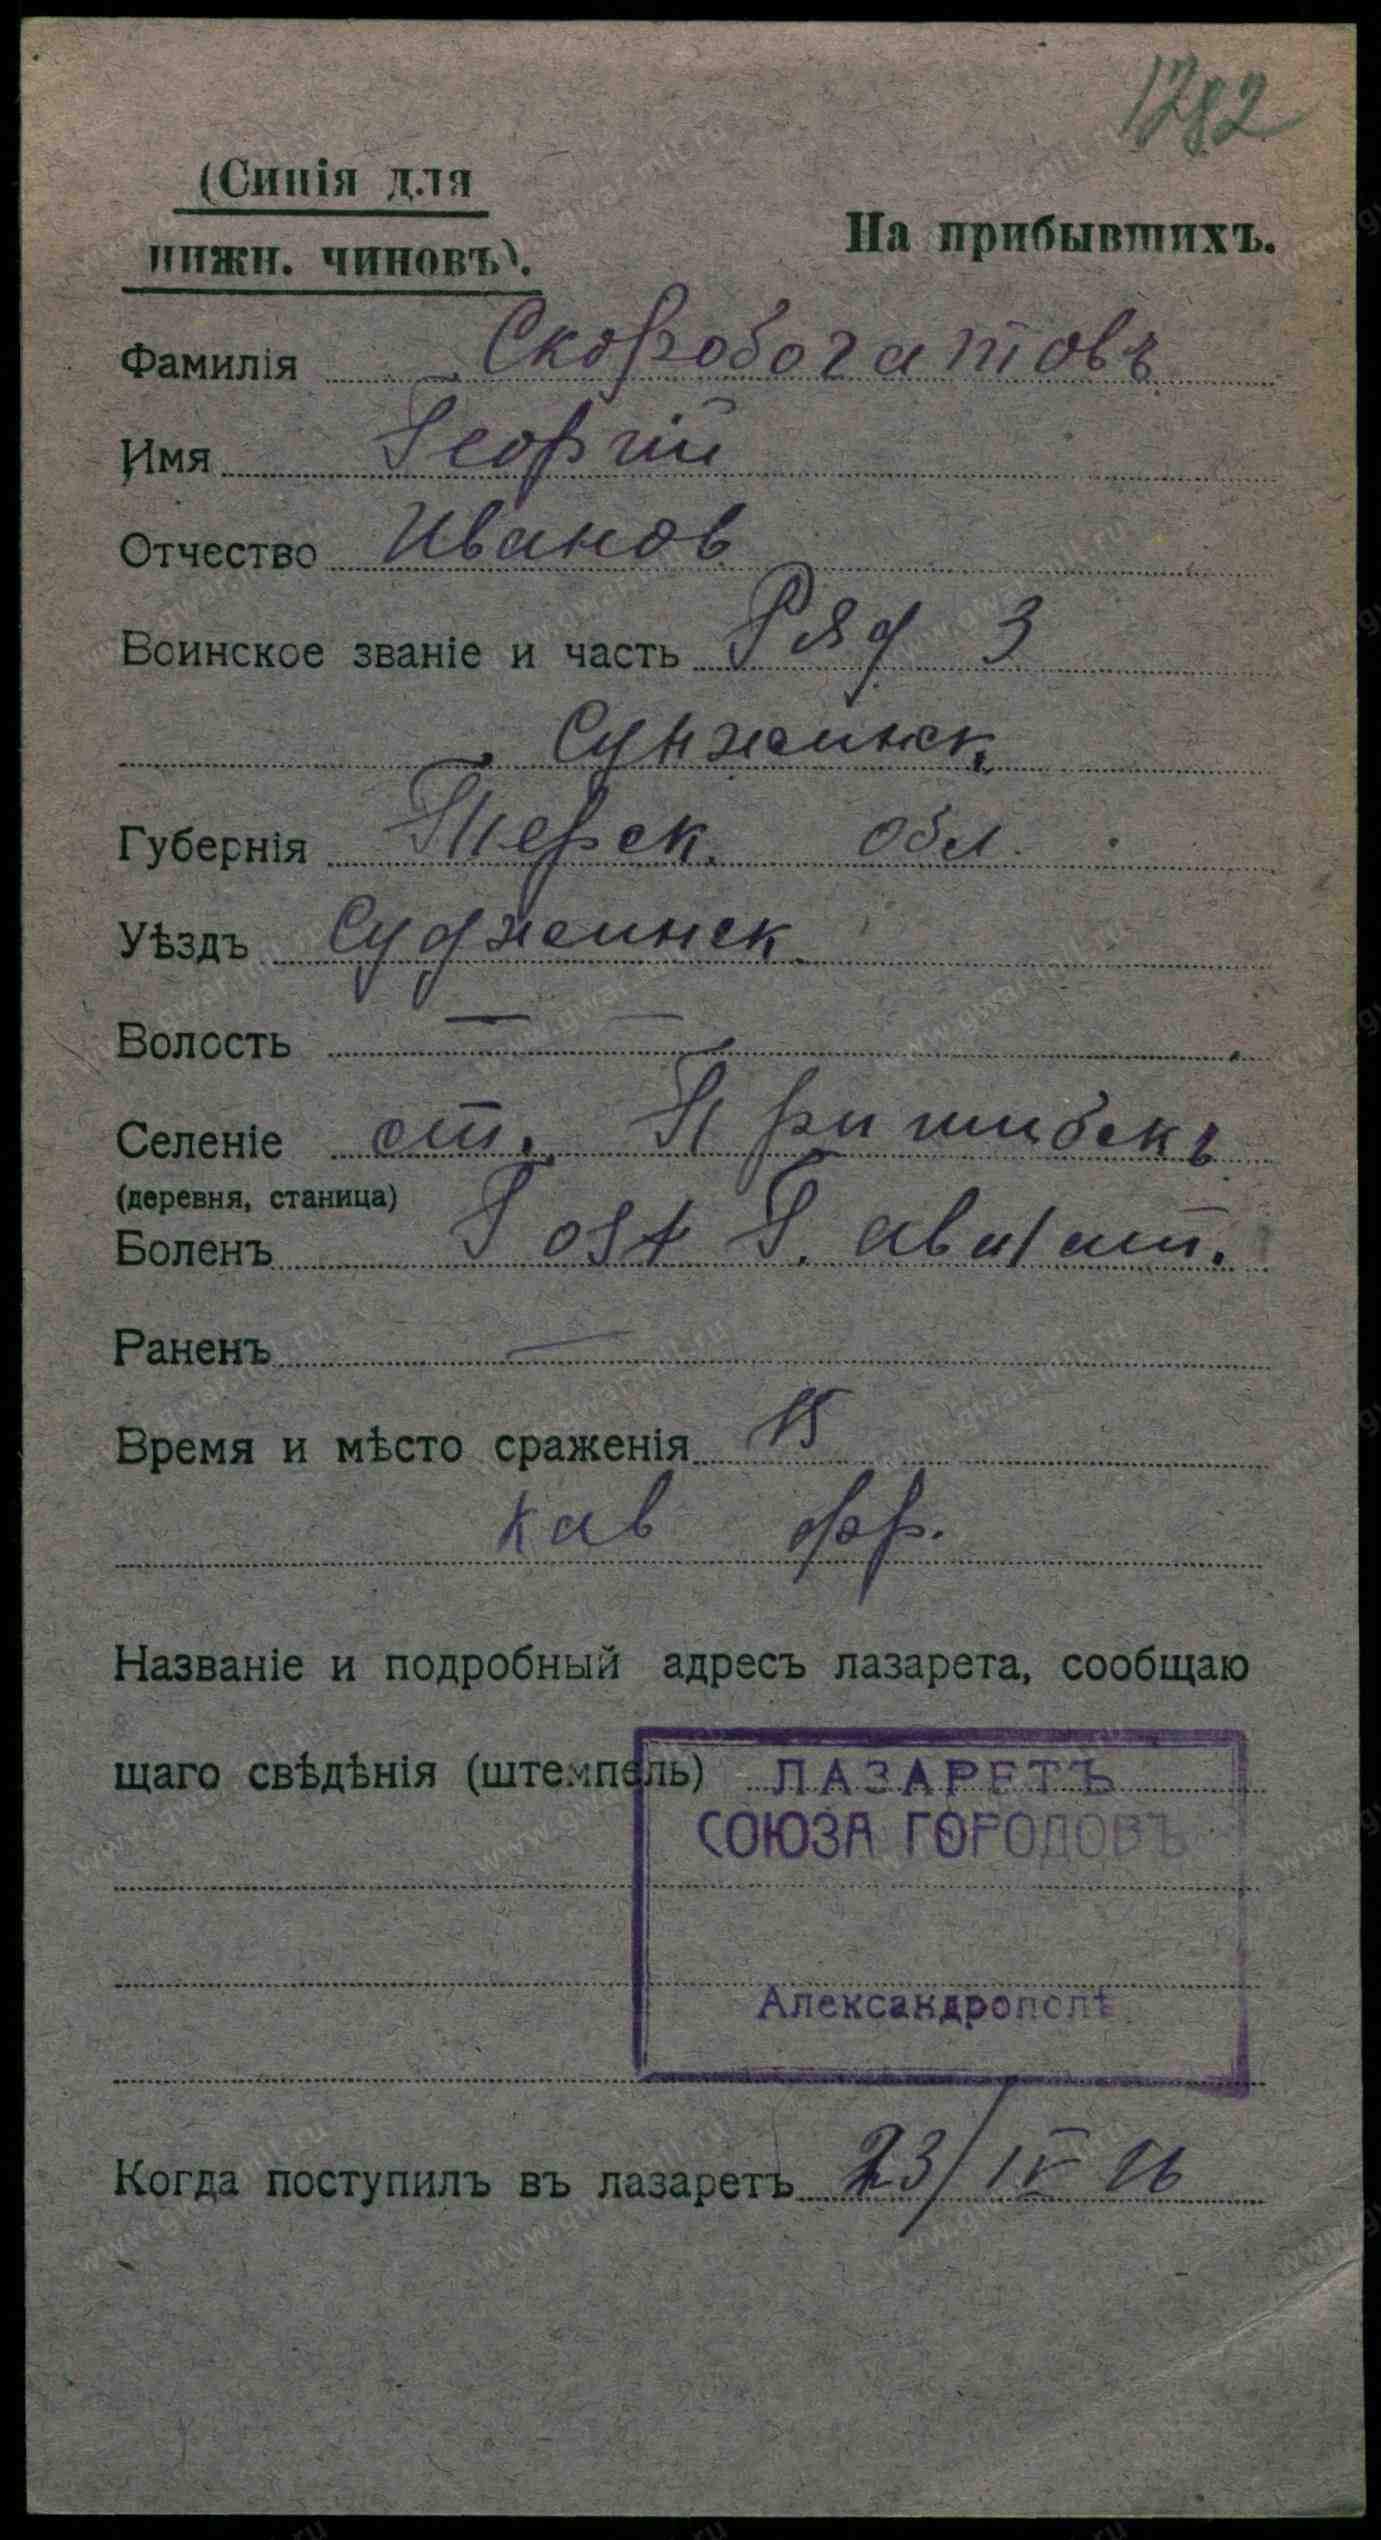 1282
(Синія для
нижн. чиновъ).
На прибывшихъ.
Фамилія Скоробогатовъ
Имя Георгій
Отчество Иванов
Воинское званіе и часть Ряд 3
Сунженск.
Губернія Терск. обл.
Уѣздъ Суджеинск.
Волость —
Селеніе ст. Пришибскъ
(деревня, станица)
Боленъ
Раненъ —
Время и мѣсто сраженія 15
Кав фр.
Названіе и подробный адресъ лазарета, сообщаю
щаго свѣдѣнія (штемпель) ЛАЗАРЕТЪ
СОЮЗА ГОРОДОВЪ
Александрополѣ
Когда поступилъ въ лазаретъ 23/IV 16